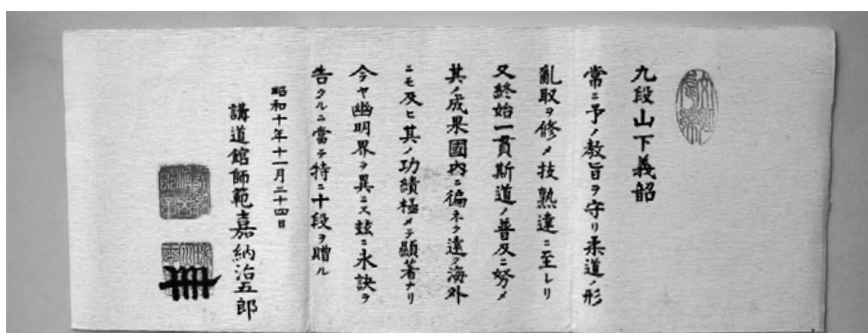 九段山下義韶
常ニ予ノ敎旨ヲ守リ柔道ノ形
亂取ヲ修メ技熟達ニ至レリ
又終始一貫斯道ノ普及ニ努メ
其ノ成果國內ニ徧ネク遠ク海外
ニモ及ヒ其ノ功績極メテ顯著ナリ
今ヤ幽明界ヲ異ニス玆ニ永訣ヲ
告クルニ當テ特ニ十段ヲ贈ル
昭和十年十一月二十四日
講道館師範嘉納治五郎